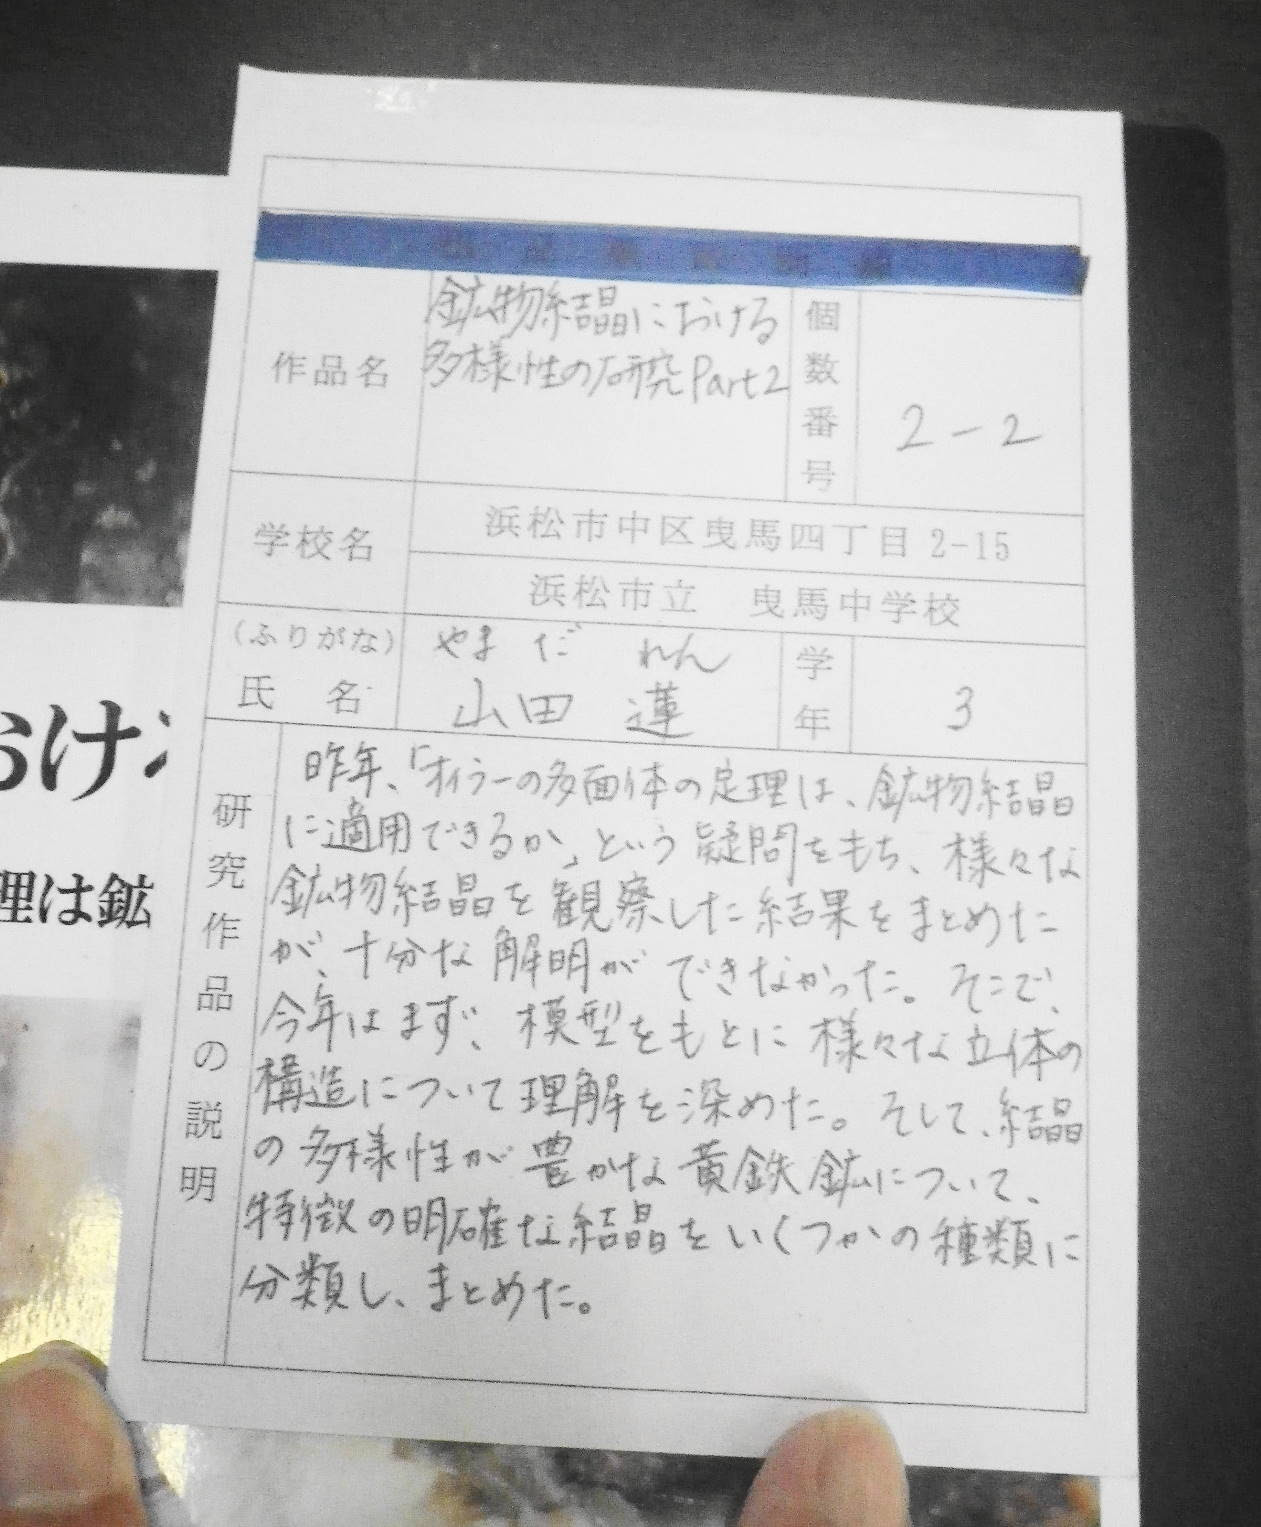 作品名
鉱物結晶における
多様性の研究Part2
個数番号
2-2
学校名
浜松市中区曳馬四丁目2-15
浜松市立 曳馬中学校
(ふりがな)
やまだ れん
氏名
山田 蓮
学年
3
研究作品の説明
昨年、「オイラーの多面体の定理は、鉱物結晶
に適用できるか」という疑問をもち、様々な
鉱物結晶を観察した結果をまとめた
が、十分な解明ができなかった。そこで、
今年はまず、模型をもとに様々な立体の
構造について理解を深めた。そして、結晶
の多様性が豊かな黄鉄鉱について、
特徴の明確な結晶をいくつかの種類に
分類し、まとめた。
おけ
理は鉱